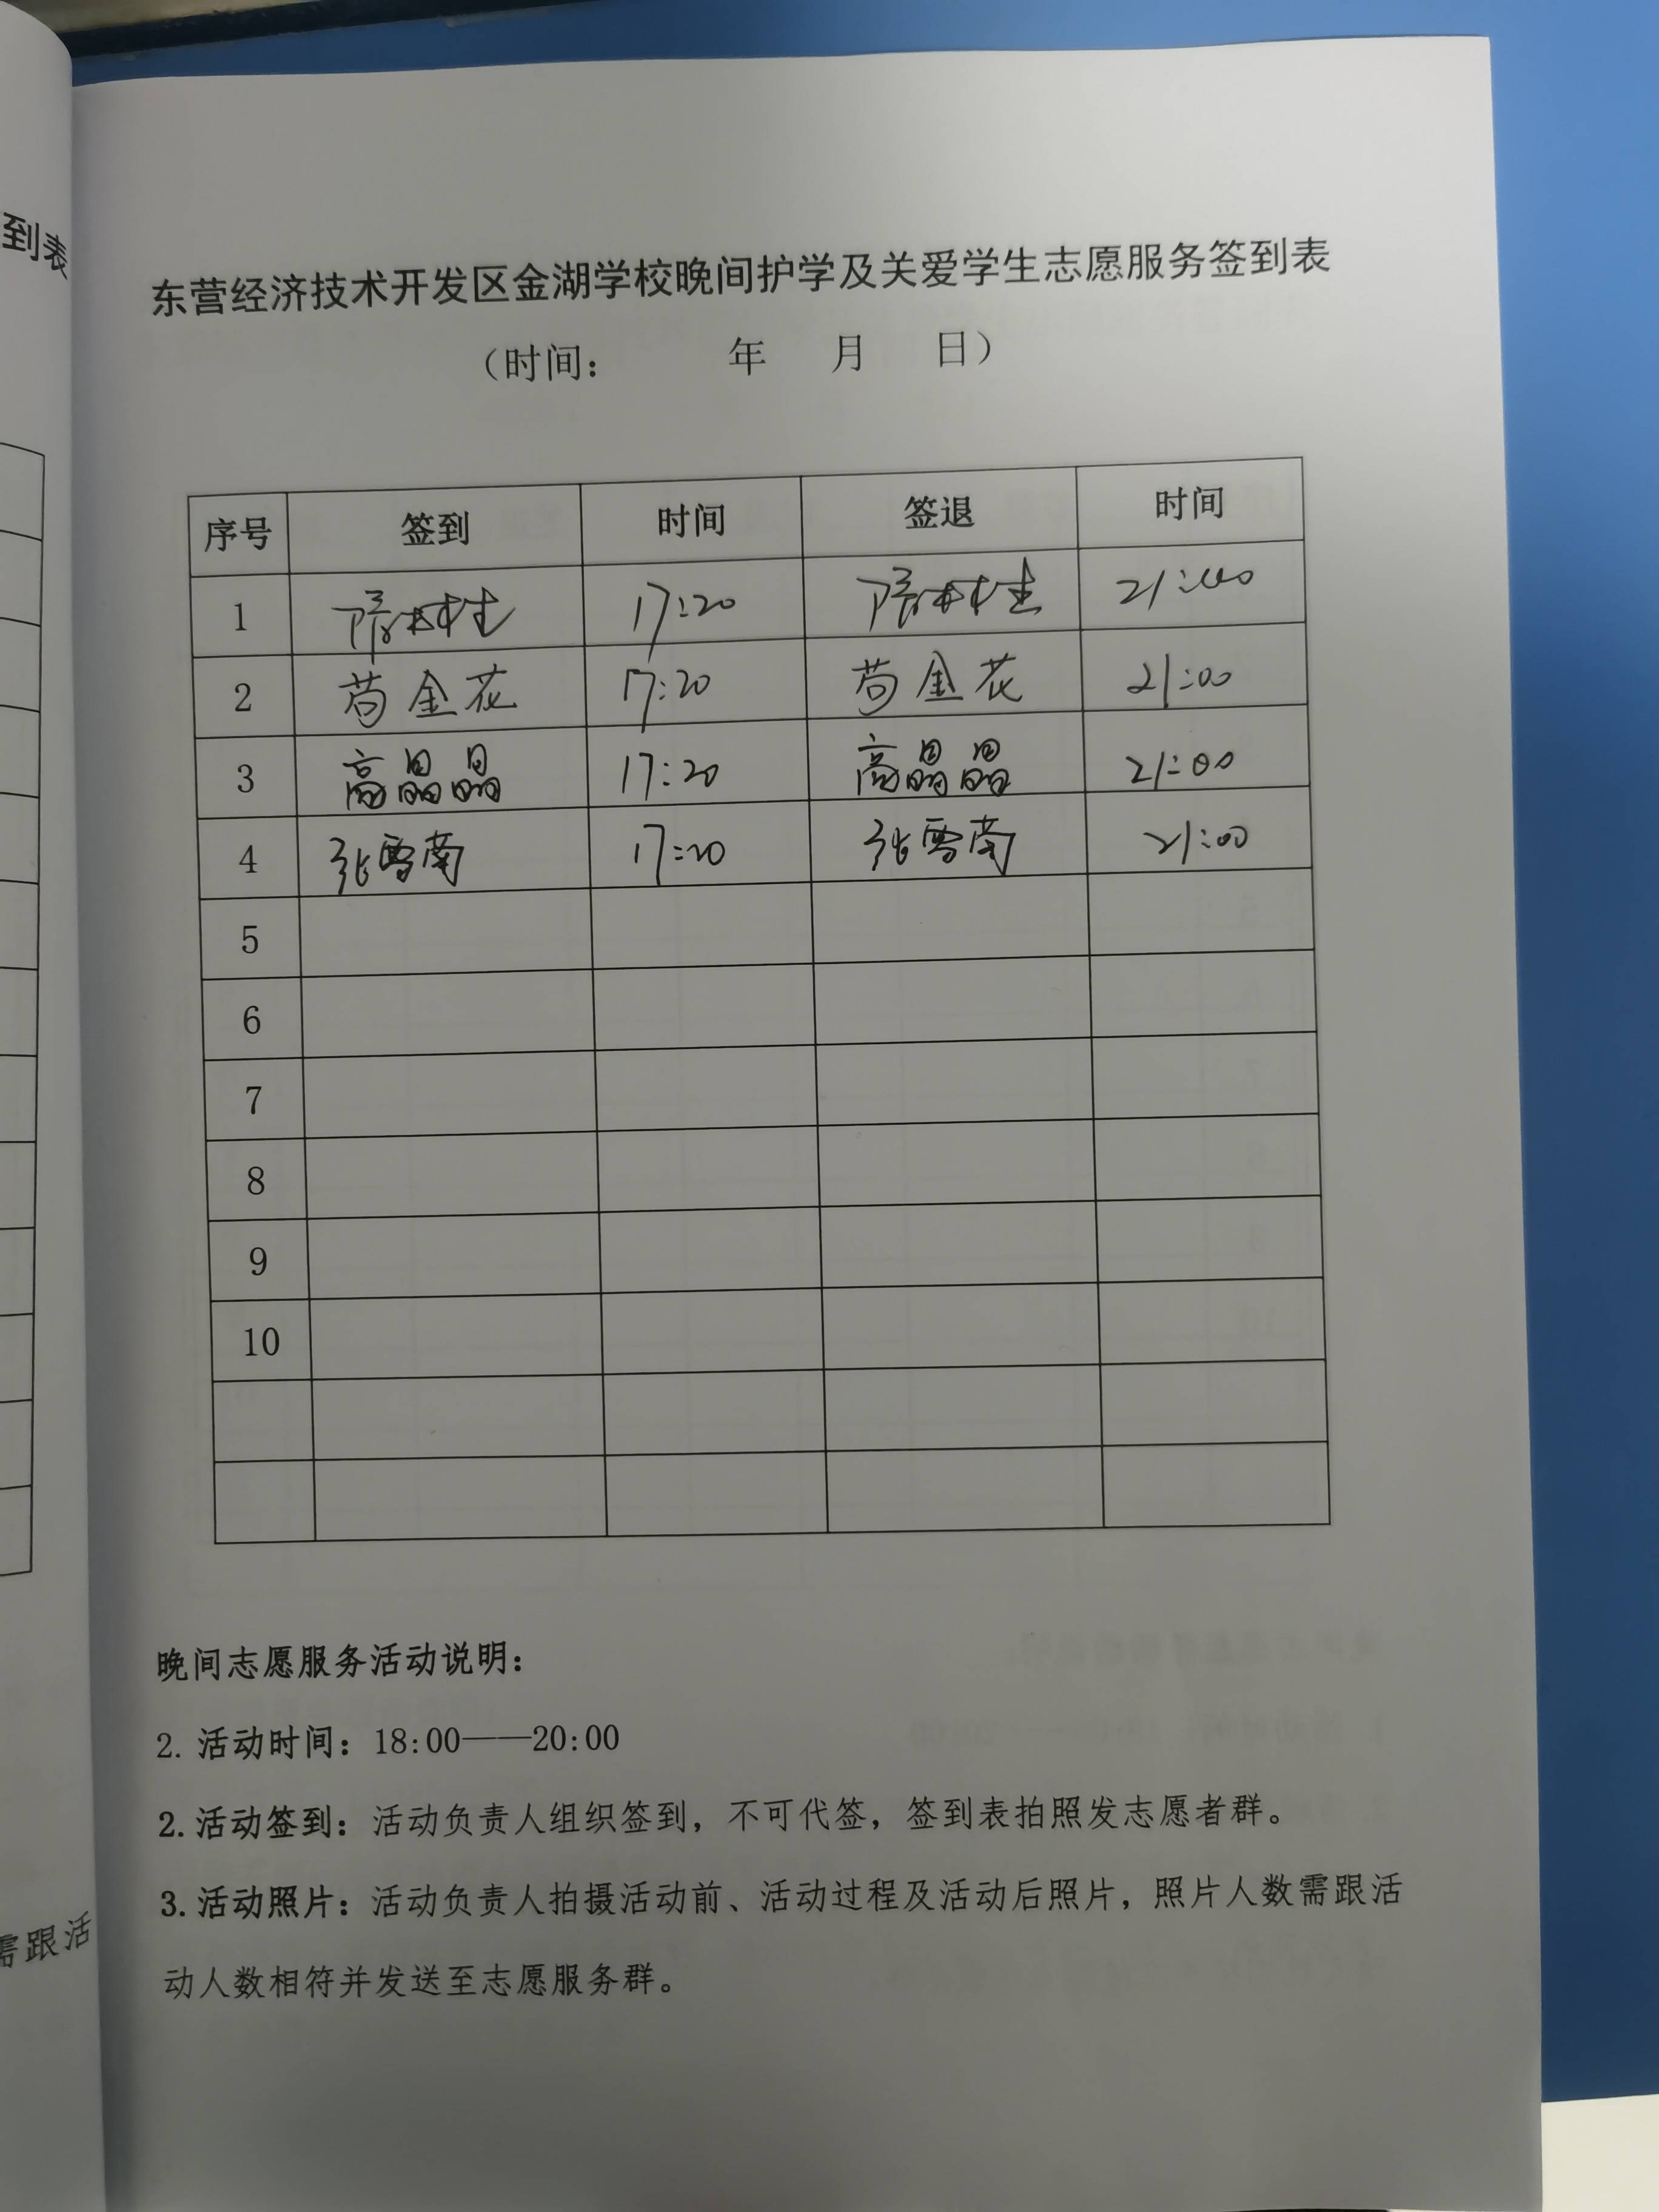 到表
东营经济技术开发区金湖学校晚间护学及关爱学生志愿服务签到表
（时间： 年 月 日）
序号 签到 时间 签退 时间
1 17:20 21:00
2 苟金花 17:20 苟金花 21:00
3 高晶晶 17:20 高晶晶 21:00
4 张雪南 17:20 张雪南 21:00
5
6
7
8
9
10
晚间志愿服务活动说明：
2. 活动时间：18:00——20:00
2. 活动签到：活动负责人组织签到，不可代签，签到表拍照发志愿者群。
3. 活动照片：活动负责人拍摄活动前、活动过程及活动后照片，照片人数需跟活
动人数相符并发送至志愿服务群。
需跟活